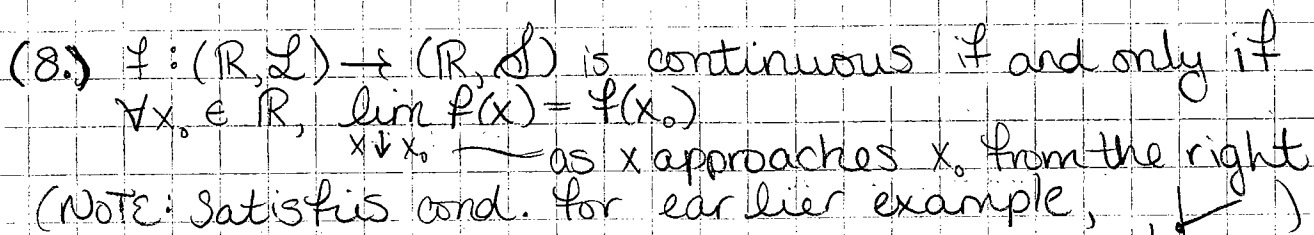 (8.) f : (ℝ, ℒ) → (ℝ, 𝒮) is continuous if and only if
∀x₀ ∈ ℝ, lim f(x) = f(x₀)
x↓x₀ — as x approaches x₀ from the right
(NOTE: Satisfies cond. for earlier example, )